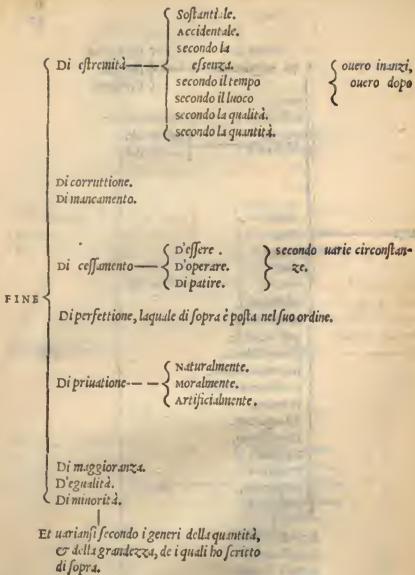 Sostantiale.
Accidentale.
secondo la
essenza.
Di estremità
secondo il tempo
secondo il luoco
secondo la qualità.
secondo la quantità.
ouero inanzi,
ouero dopo
Di corruttione.
Di mancamento.
D'essere.
Di cessamento
D'operare.
Di patire.
secondo uarie circonstan-
ze.
FINE
Di perfettione, laquale di sopra è posta nel suo ordine.
Naturalmente.
Di priuatione
Moralmente.
Artificialmente.
Di maggioranza.
D'egualità.
Di minorità.
Et uariansi secondo i generi della quantità,
& della grandezza, de i quali ho scritto
di sopra.